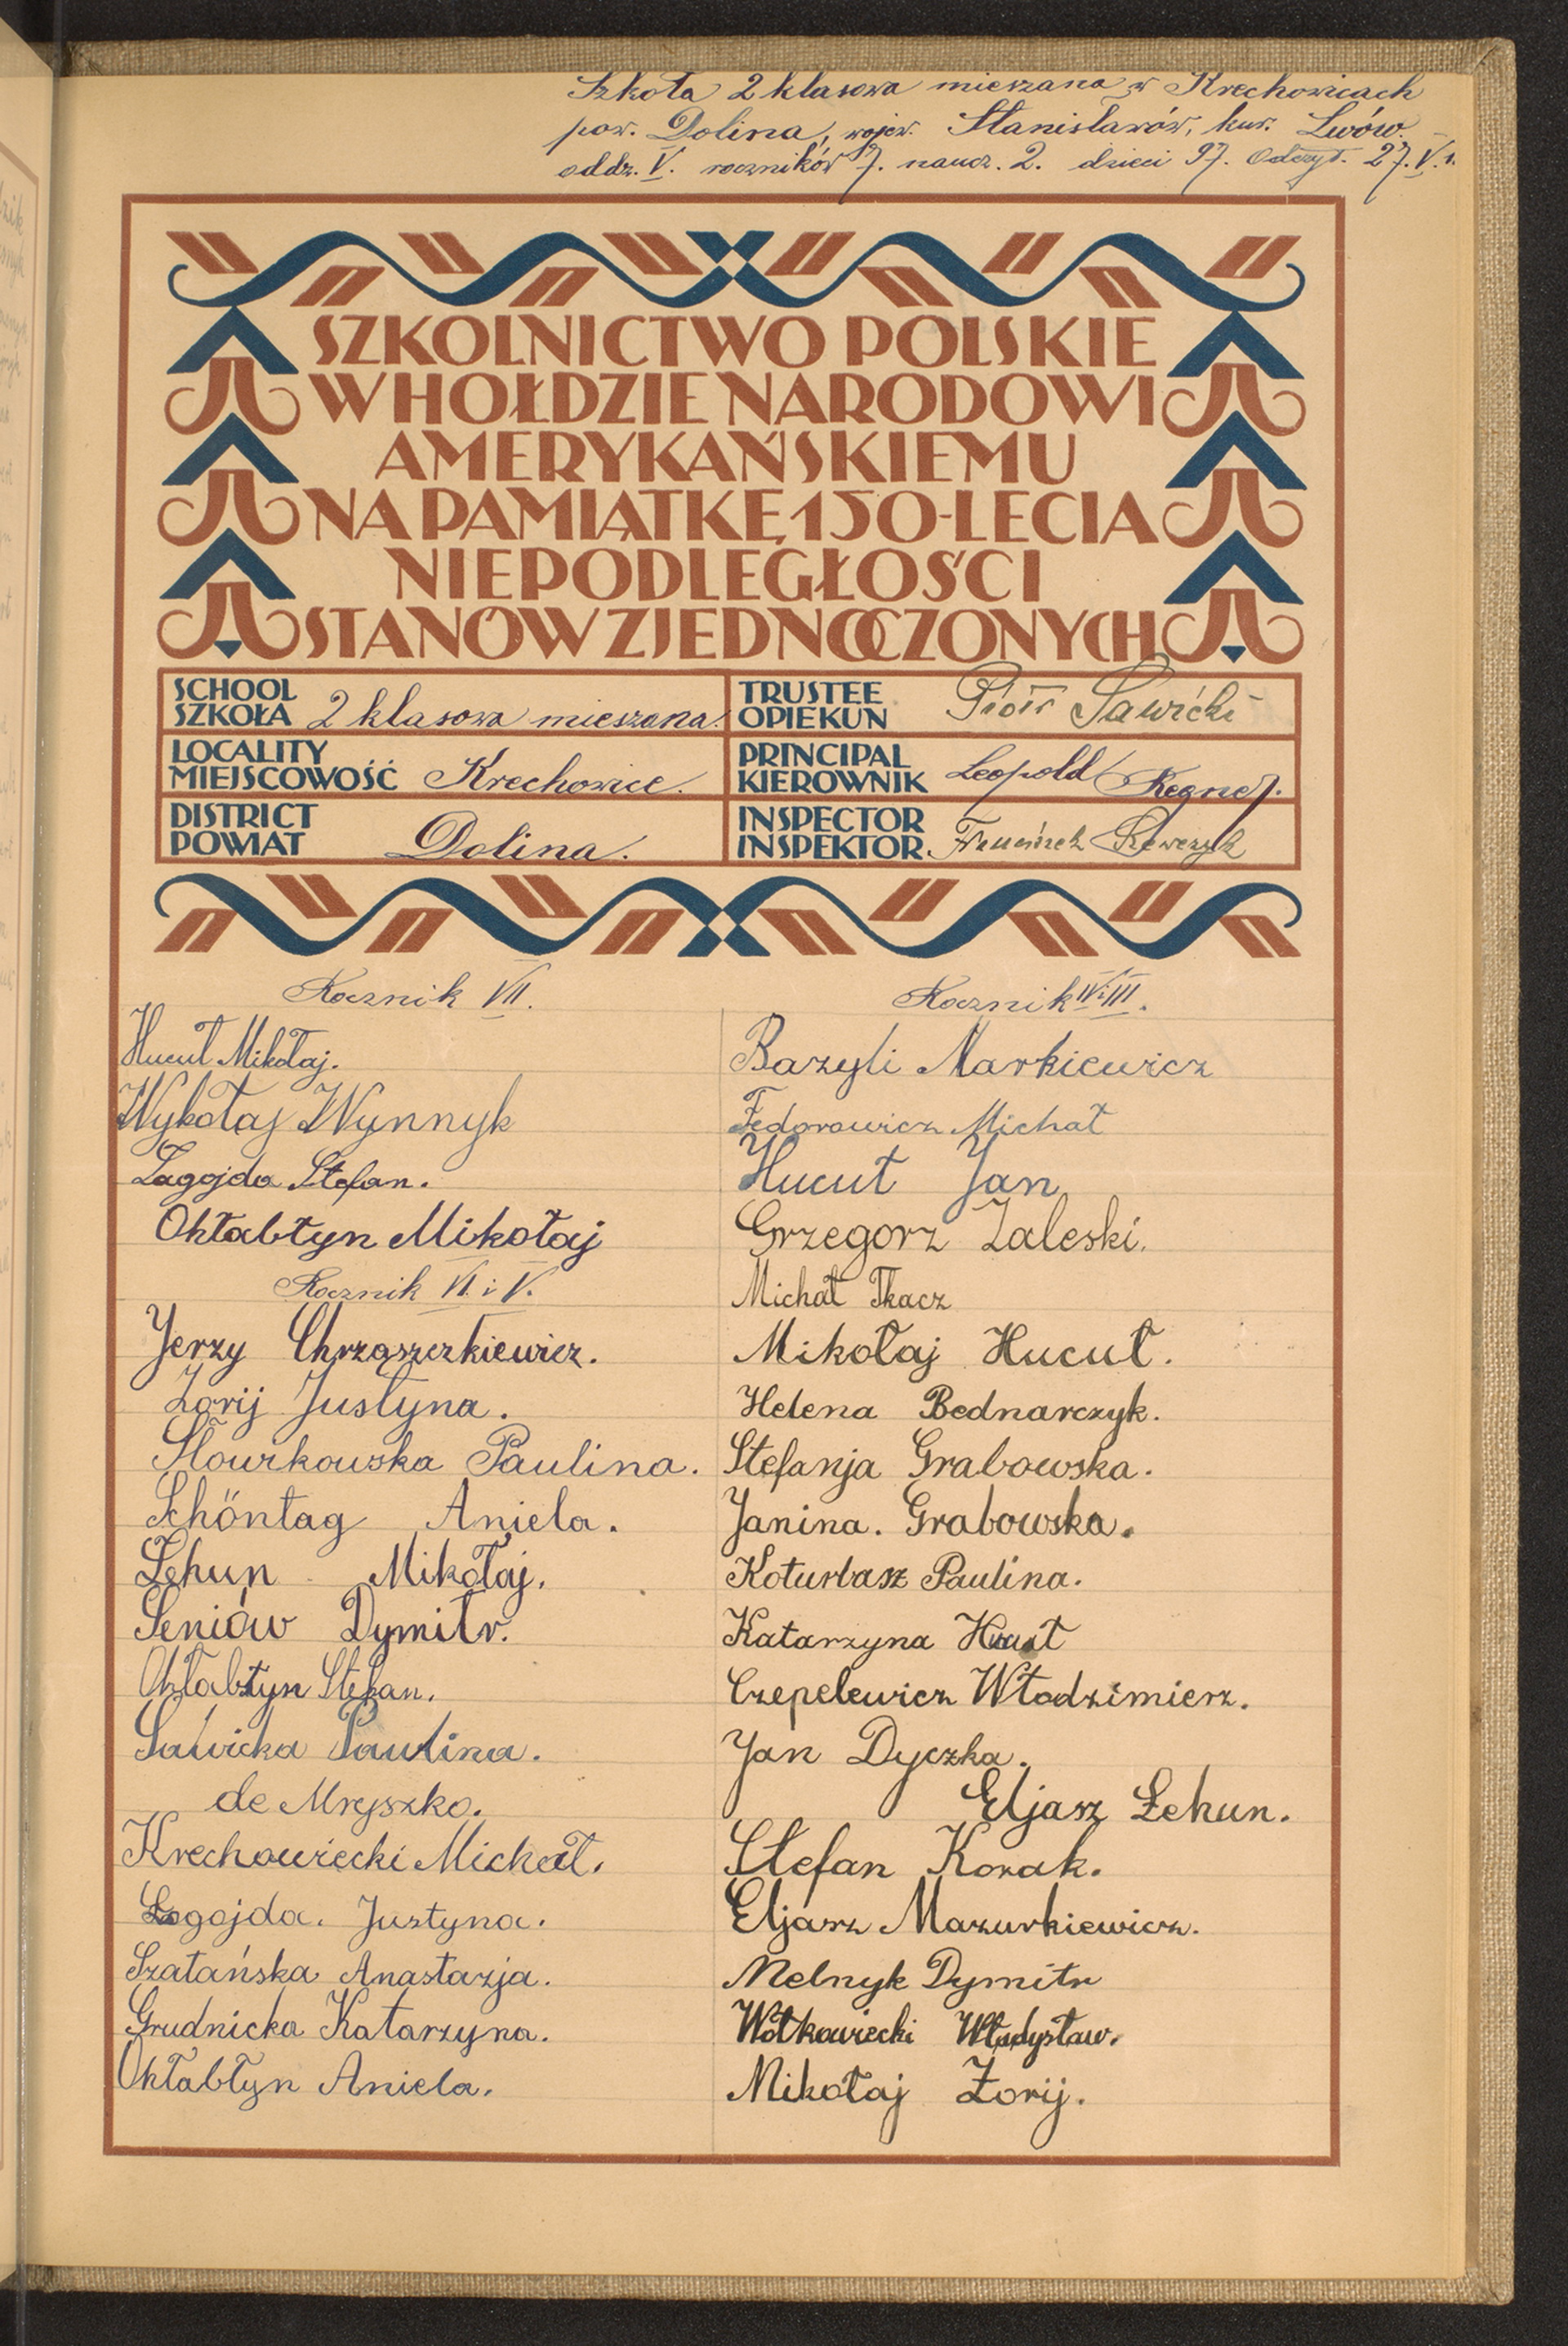 Szkoła 2 klasowa mieszana w Krechowicach
pow. Dolina, wojew. Stanisławów, kur. Lwów.
oddz. V. roczników 7. naucz. 2. dzieci 97. Odczyt. 27.V.
SZKOLNICTWO POLSKIE
W HOŁDZIE NARODOWI
AMERYKAŃSKIEMU
NA PAMIĄTKĘ 150-LECIA
NIEPODLEGŁOŚCI
STANÓW ZJEDNOCZONYCH
SCHOOL
SZKOŁA 2 klasowa mieszana.
TRUSTEE
OPIEKUN Piotr Sawicki
LOCALITY
MIEJSCOWOŚĆ Krechowice.
PRINCIPAL
KIEROWNIK Leopold Regner.
DISTRICT
POWIAT Dolina.
INSPECTOR
INSPEKTOR. Franciszek
Rocznik VII.
Hucuł Mikołaj.
Wykołaj Wynnyk
Łagojda Stefan.
Okłabłyn Mikołaj
Rocznik VI. i V.
Jerzy Chrząszczkiewicz.
Zorij Justyna.
Słowrkowska Paulina.
Schöntag Aniela.
Łehun Mikołaj.
Seniów Dymitr.
Okłabłyn Stefan.
Sawicka Paulina.
de Mryszko.
Krechowiecki Michał.
Łagojda. Justyna.
Szatańska Anastazja.
Grudnicka Katarzyna.
Okłabłyn Aniela.
Rocznik IV i III.
Bazyli Markiewicz
Fedorowicz Michał
Hucuł Jan
Grzegorz Zaleski.
Michał Tkacz
Mikołaj Hucuł.
Helena Bednarczyk.
Stefanja Grabowska.
Janina. Grabowska.
Koturbasz Paulina.
Katarzyna
Czepelewicz Włodzimierz.
Jan Dyczka.
Eljasz Łehun.
Stefan Kozak.
Eljasz Mazurkiewicz.
Melnyk Dymitr
Wołkowiecki Władysław.
Mikołaj Zorij.